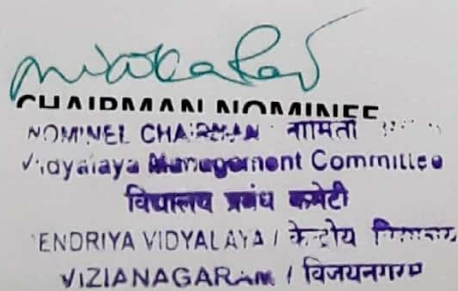 CHAIRMAN NOMINEE
NOMINEE CHAIRMAN
Vidyalaya Management Committee
विद्यालय प्रबंध कमेटी
ENDRIYA VIDYALAYA / केन्द्रीय
VIZIANAGARAM / विजयनगरम